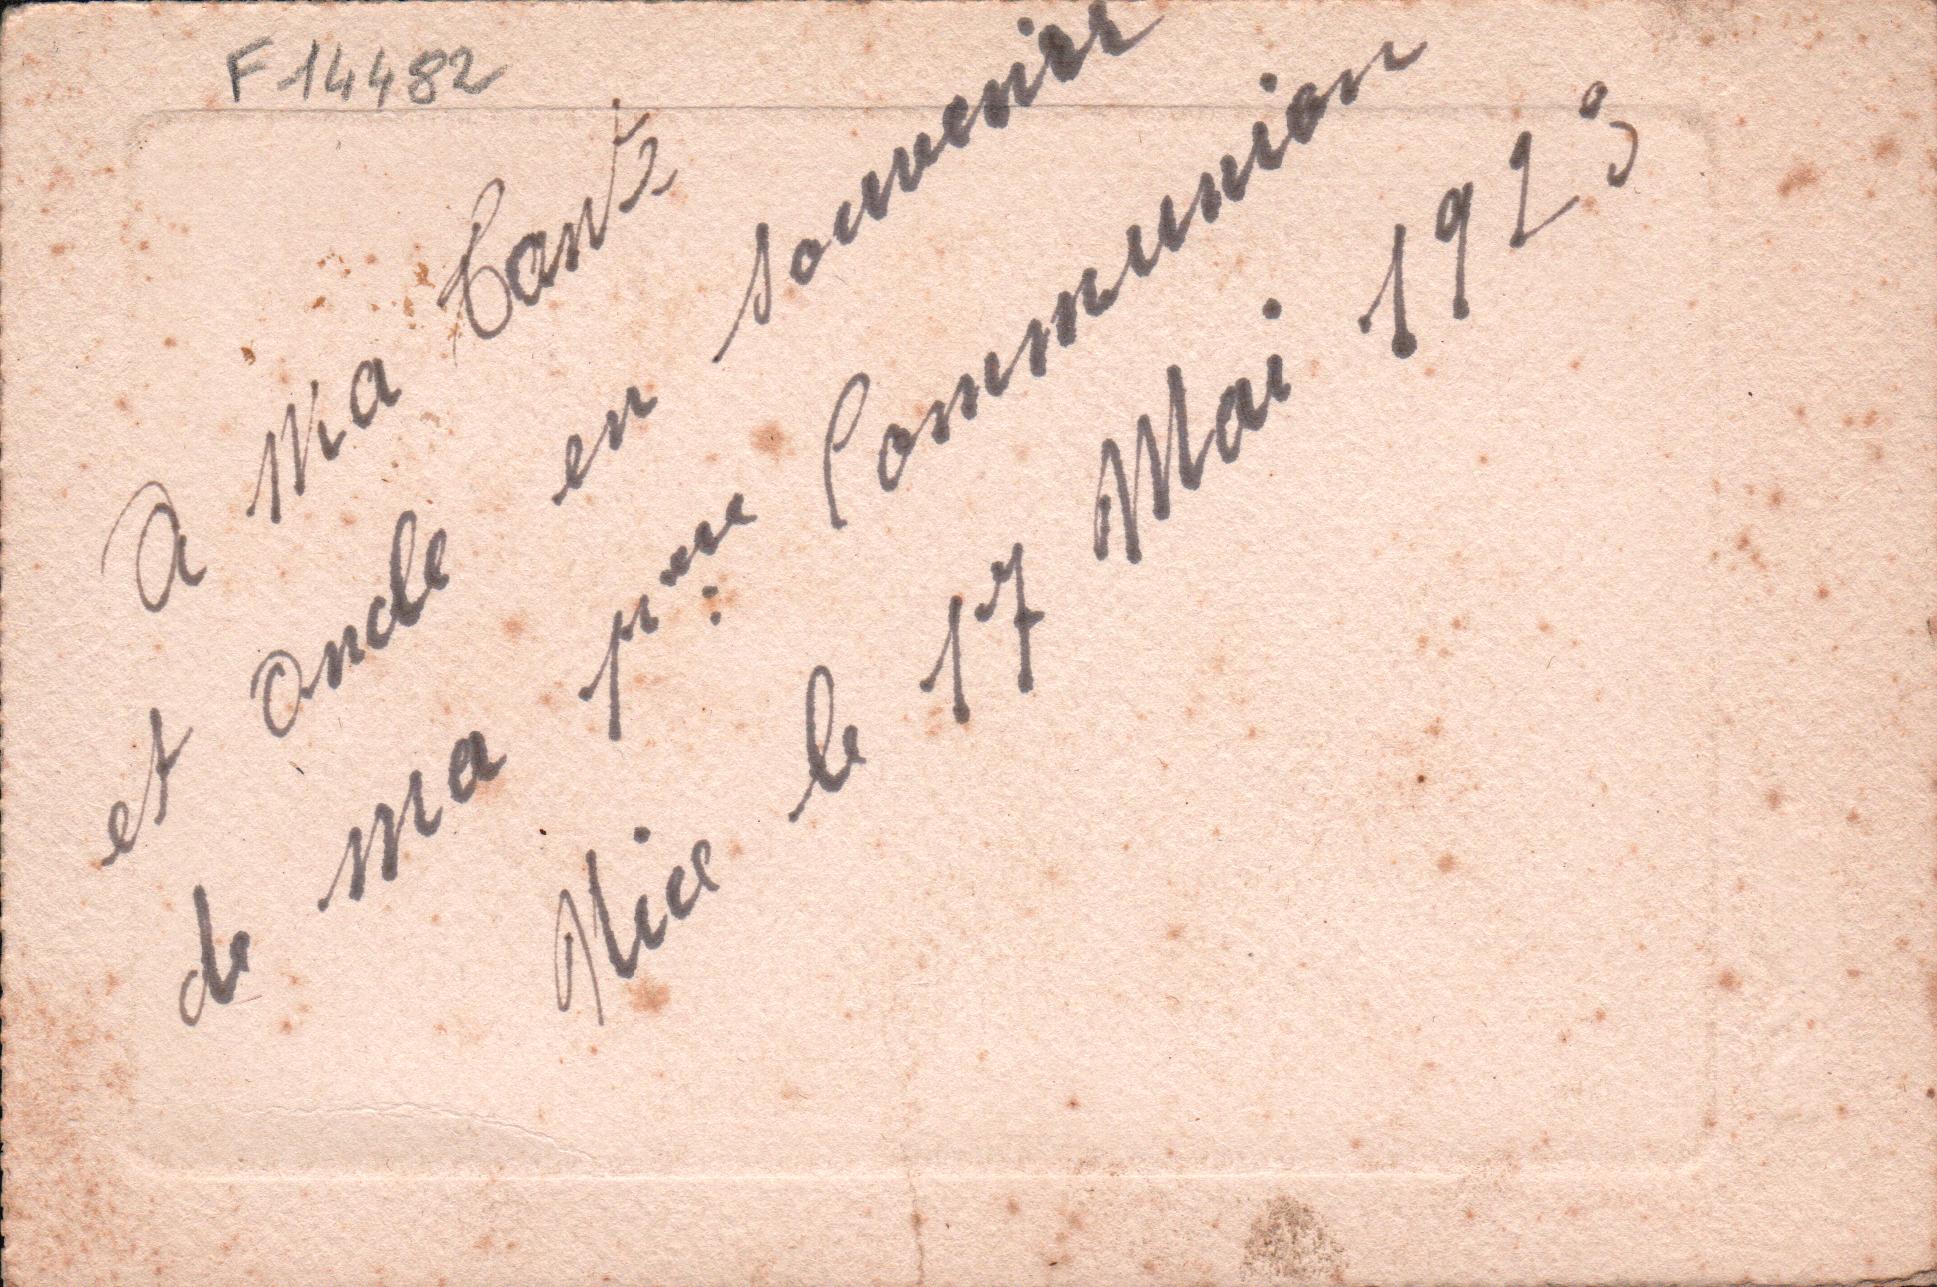 F 14482
A ma tante
et oncle en souvenir
de ma Communion
Nice le 17 Mai 1923